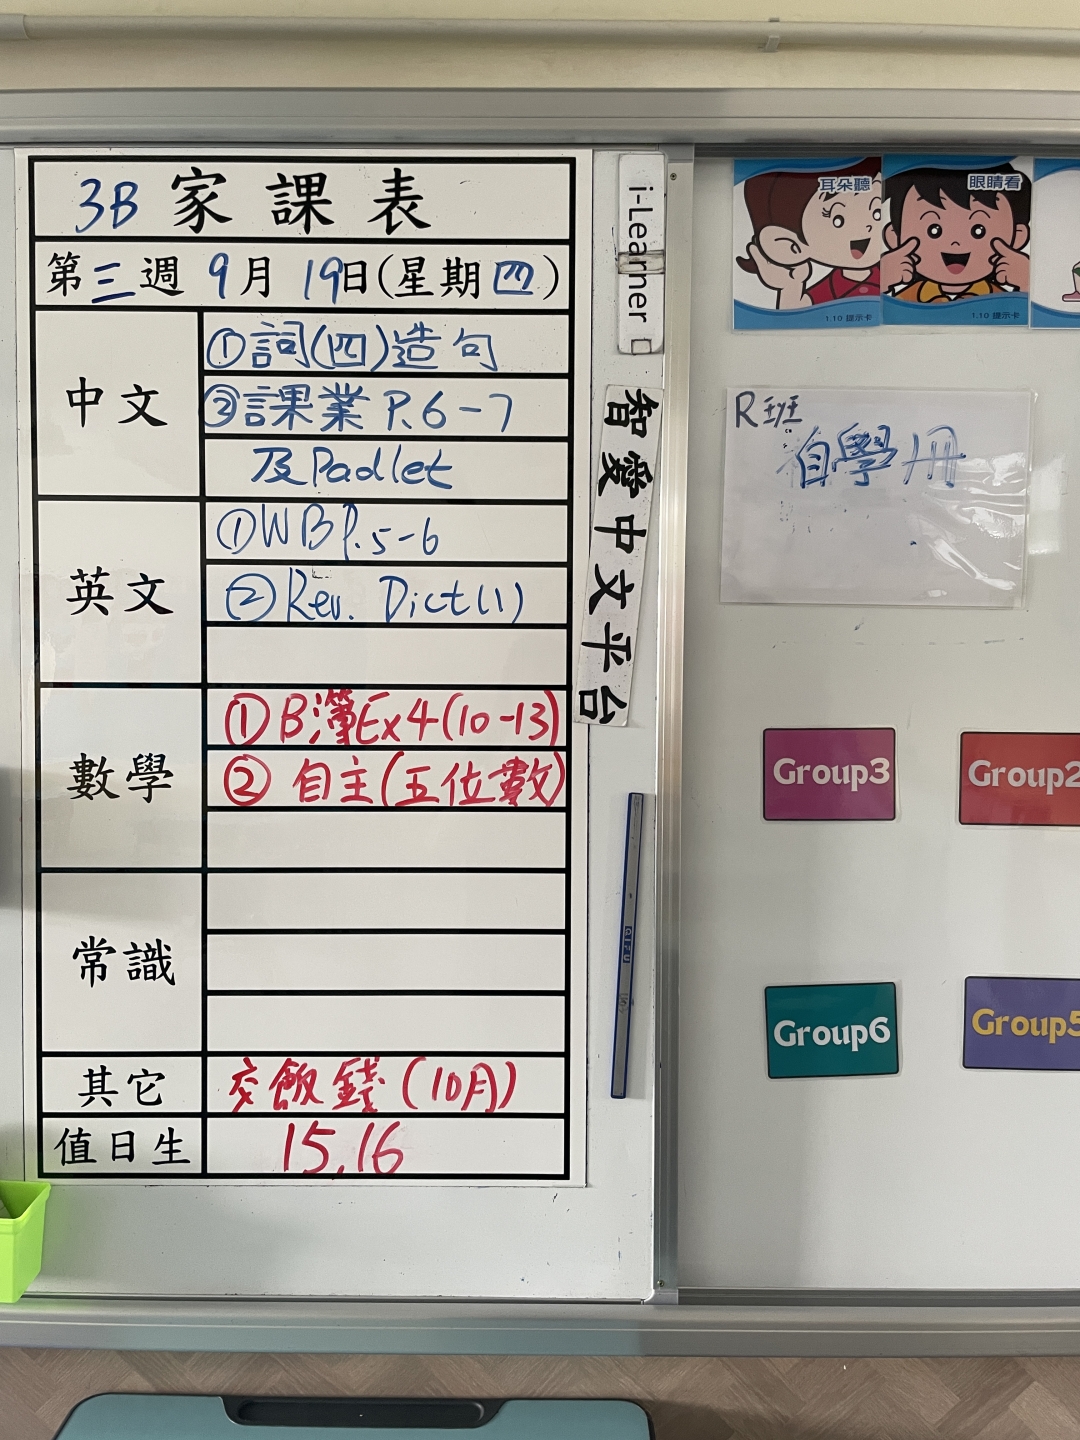 3B 家課表
第三週 9月19日(星期四)
中文
①詞(四)造句
②課業 P.6-7
及Padlet
英文
①WB P.5-6
②Rev. Dict(1)
數學
①B簿Ex4(10-13)
② 自主(五位數)
常識
其它
交飯錢(10月)
值日生
15,16
i-Learner
智愛中文平台
耳朵聽
1.10 提示卡
眼睛看
1.10 提示卡
R班
自學冊
Group3
Group2
Group6
Group5